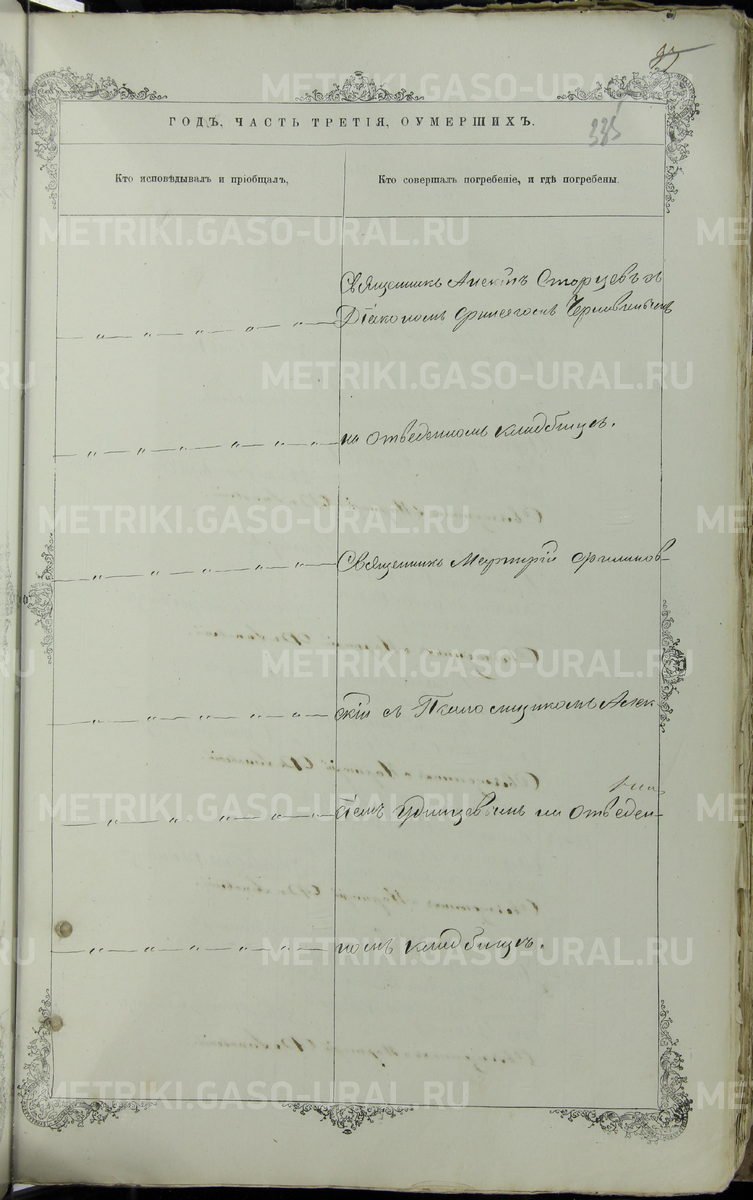 335
ГОДЪ, ЧАСТЬ ТРЕТІЯ, ОУМЕРШИХЪ.
Кто исповѣдывалъ и пріобщалъ,
Кто совершалъ погребеніе, и гдѣ погребены.
Священникъ Алексій Старцевъ съ
Діакономъ
— „ — „ — „ — „ — „ —
на отведенномъ кладбищѣ.
— „ — „ — „ — „ — „ —
Священникъ Мартирій Филинов-
— „ — „ — „ — „ — „ —
скій съ Псаломщикомъ Алек
— „ — „ — „ — „ — „ —
сіемъ Удинцевымъ на отведен-
— „ — „ — „ — „ — „ —
номъ кладбищѣ.
— „ — „ — „ — „ — „ —
METRIKI.GASO-URAL.RU